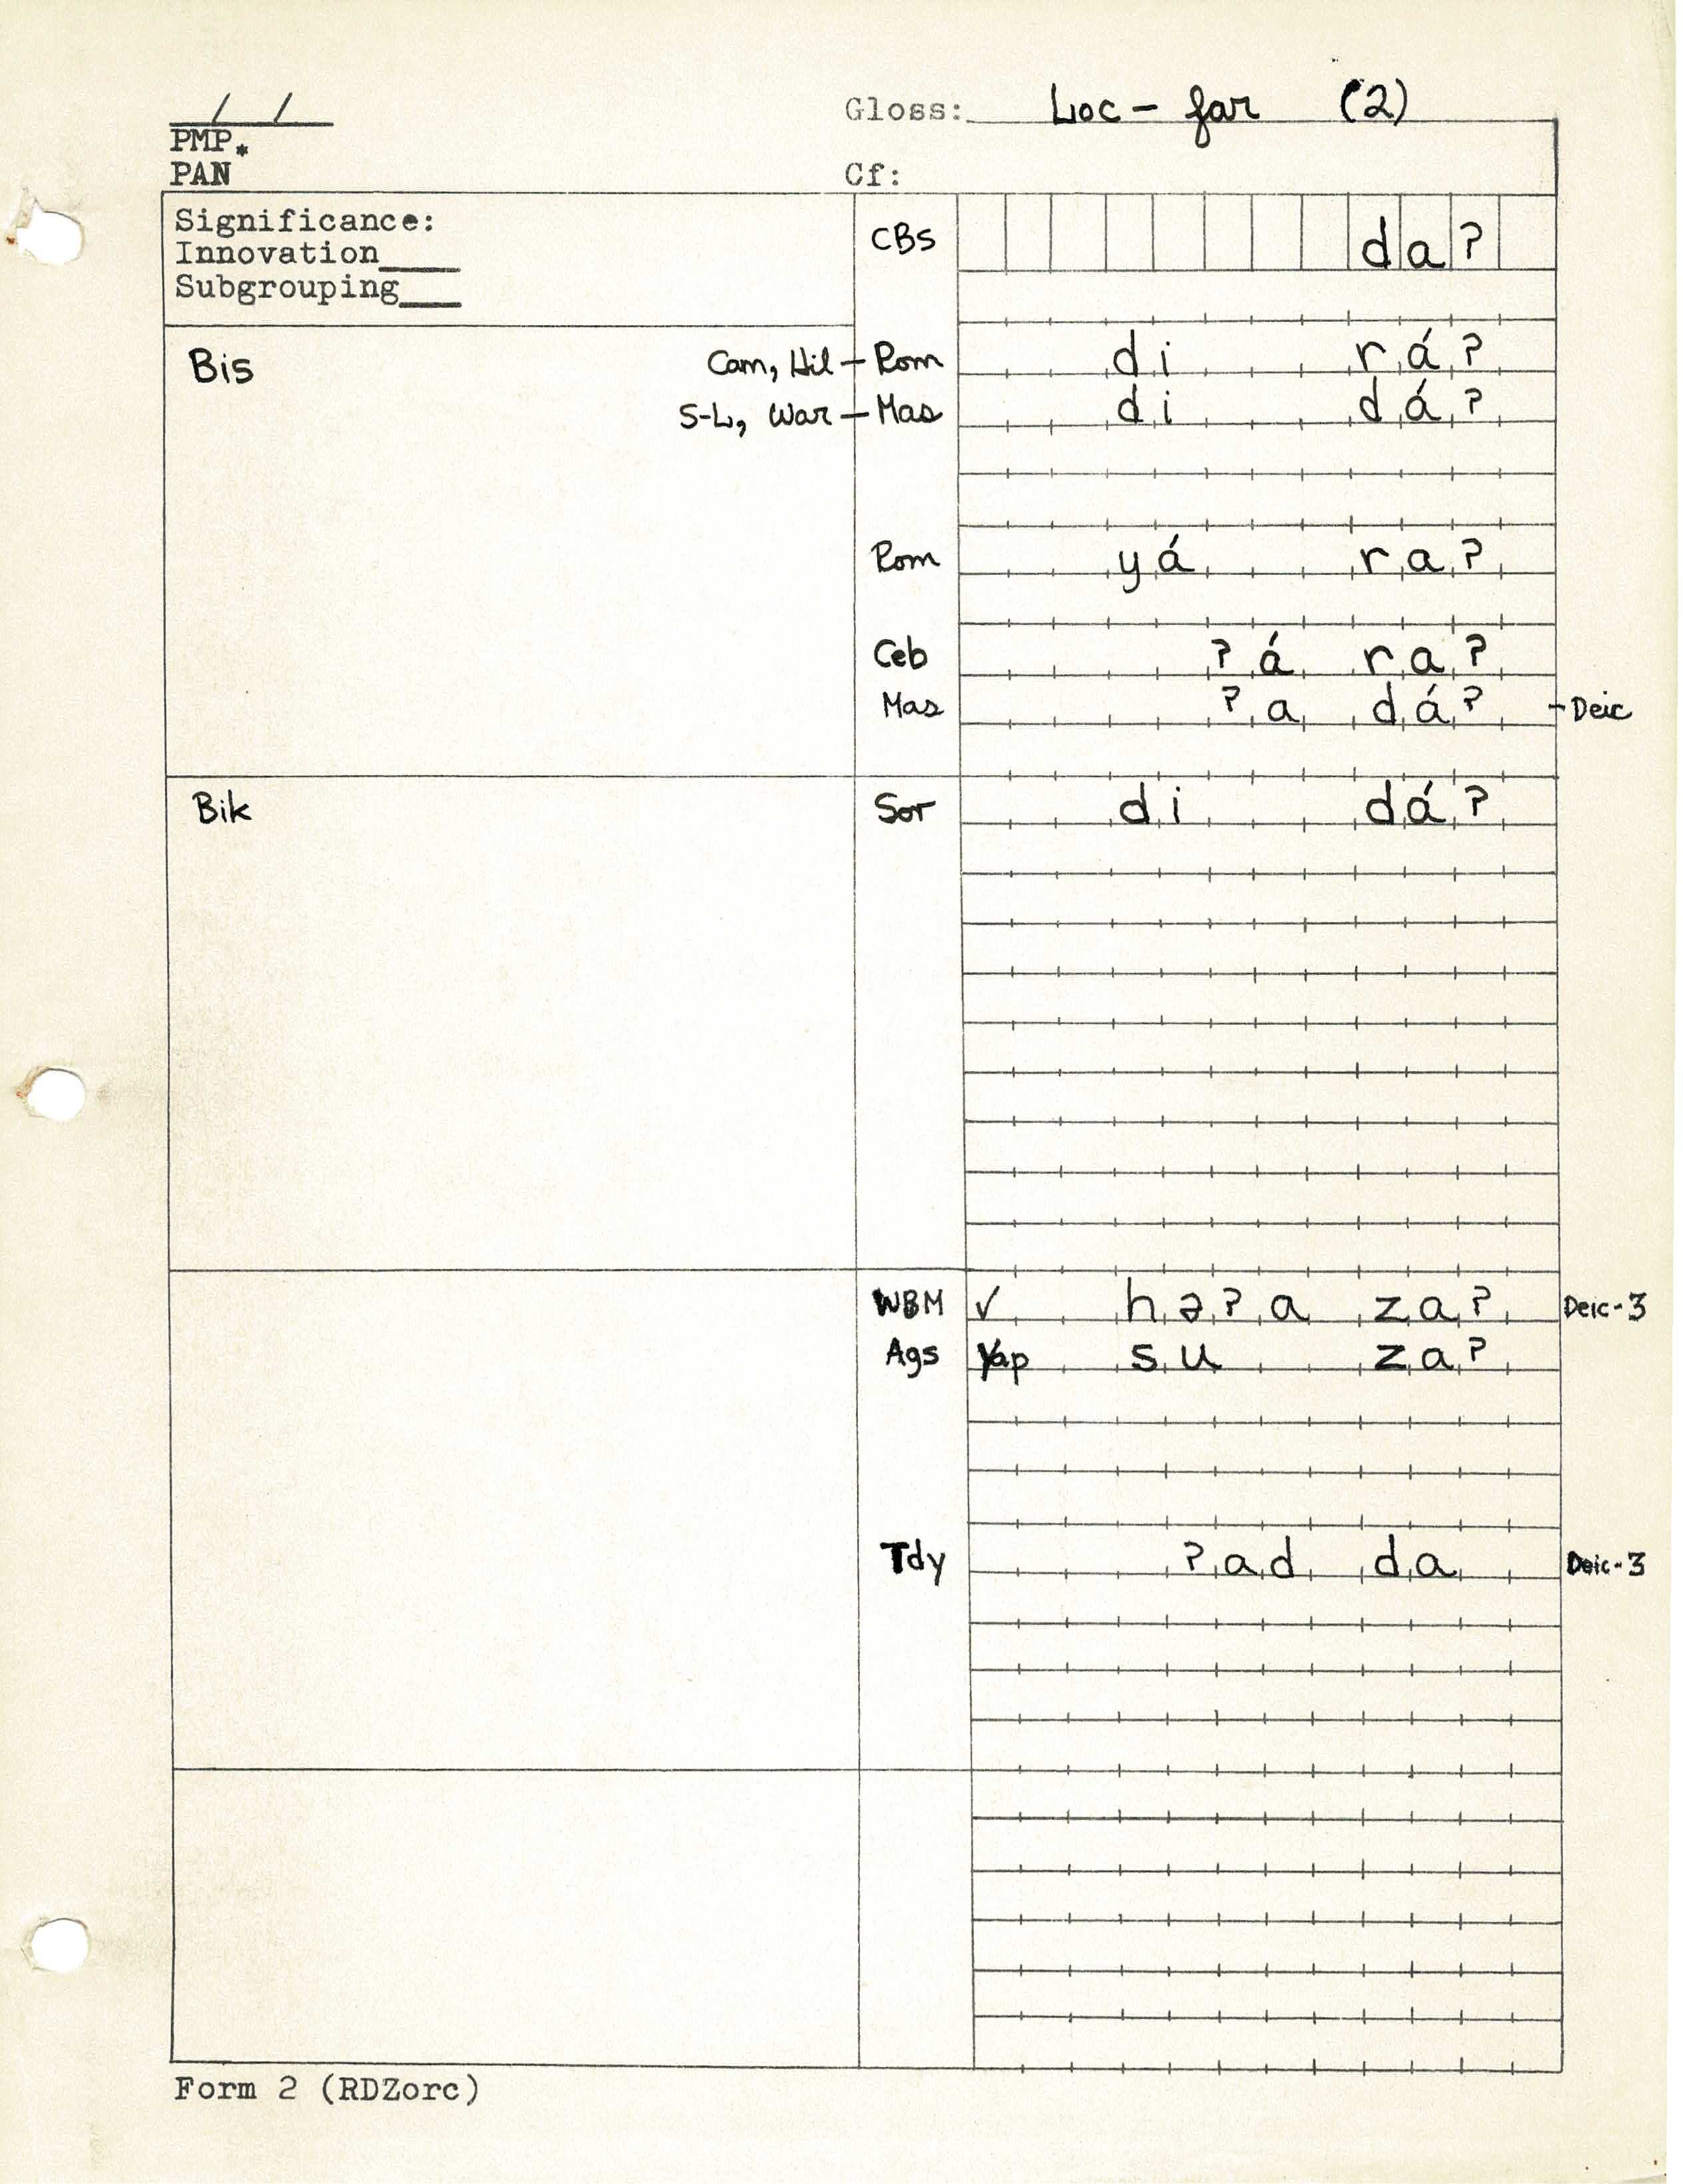 / /
Gloss: Loc - far (2)
PMP*
PAN
Cf:
Significance:
Innovation____
Subgrouping___
CBS da?
Bis Cam, Hil - Rom di rá?
S-L, War - Mas di dá?
Rom yá ra?
Ceb ?á ra?
Mas ?a dá? - Deic
Bik Sor di dá?
WBM ✓ hə?a za? Deic-3
Ags Yap su za?
Tdy ?ad da Deic-3
Form 2 (RDZorc)